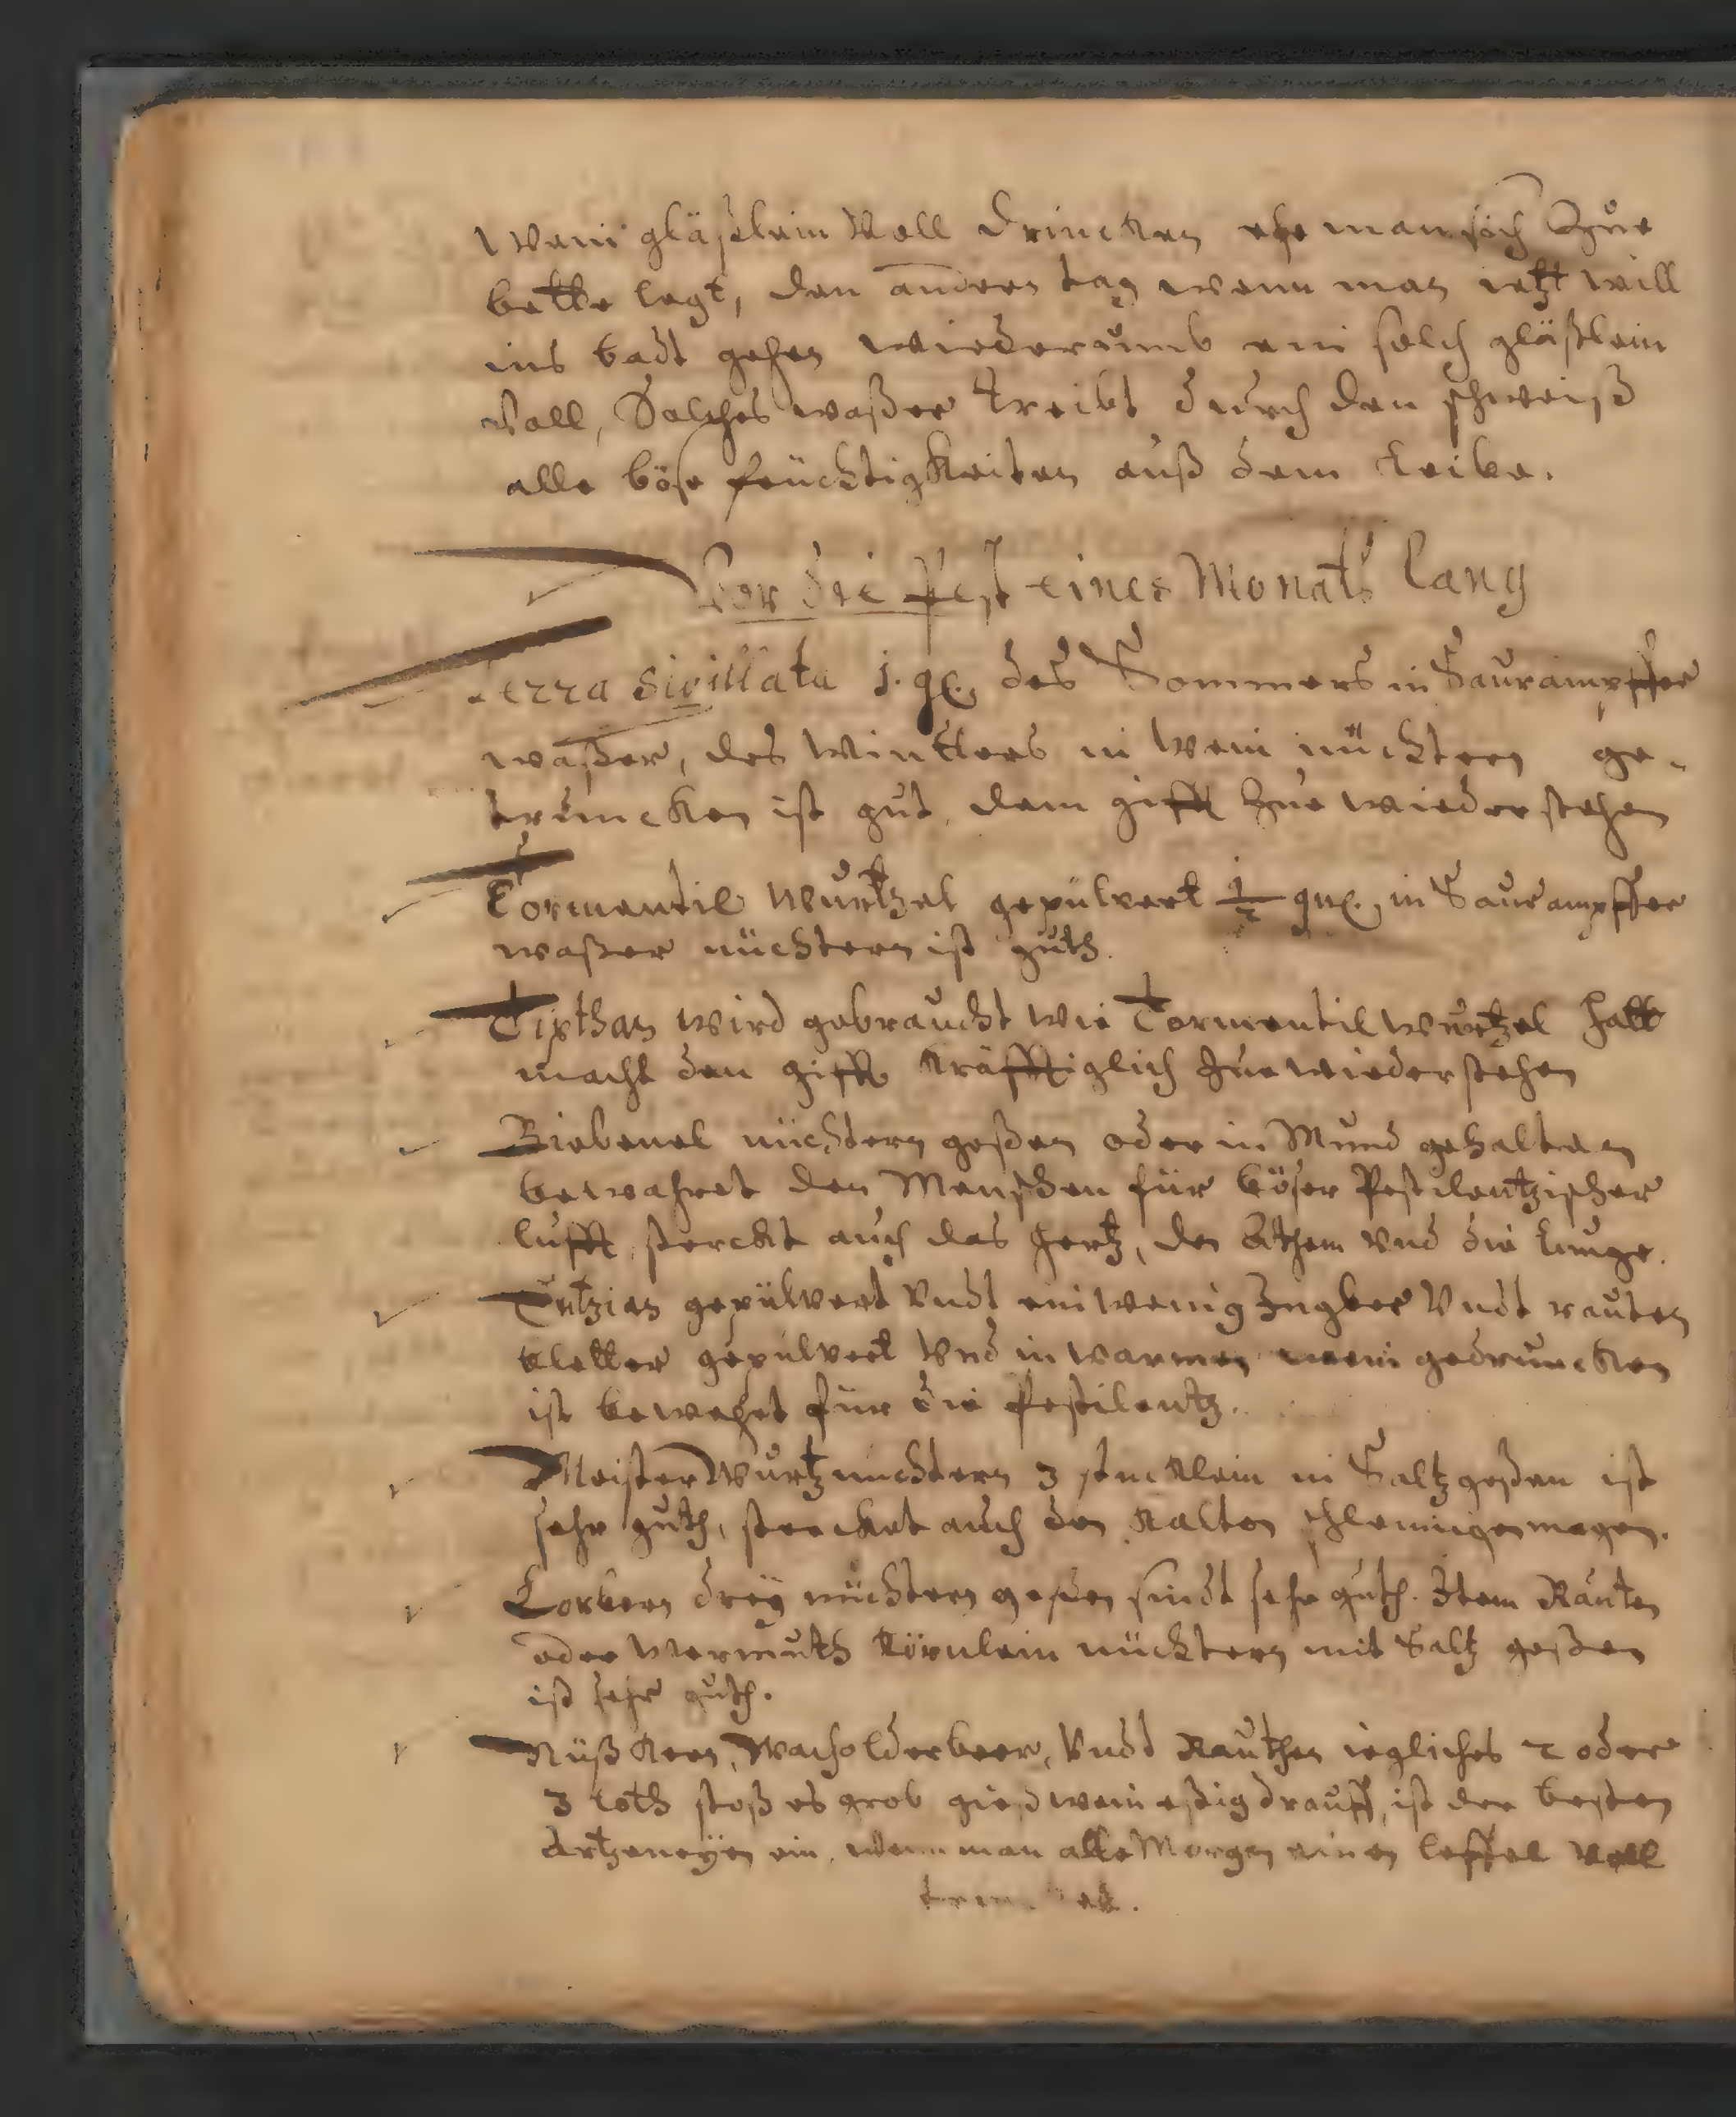 Wein gläßlein Voll drincken ehe man sich Zue
bette legt, den andern tag wenn man ietzt will
ins badt gehen wiederumb ein solch gläßlein
Voll, Solches waßer treibt durch den schweiß
alle böse feuchtigkeiten auß dem Leibe.
Vor die Pest eines Monats Lang
Terra Sigillata j. q. des Sommers in Saurampffer
waßer, des Winters in Wein nüchtern ge-
truncken ist gut, dem gifft Zue wiederstehen
Tormentil Wurtzel gepülvert ½ qu. in Saurampffer
waßer nüchtern ist guth.
Dipthan wird gebraucht wie Tormentil Wurtzel hatt
macht den gifft kräfftiglich Zue wiederstehen
Biebenel nüchtern geßen oder in Mund gehalten
bewahret den Menschen für böser Pestilentzischer
lufft, sterckt auch das Hertz, den Athem Vnd die Lunge.
Entzian gepülvert Vndt ein wenig Ingber Vndt rauten
bletter gepülvert Vnd in warmen wein gedruncken
ist bewehrt für die Pestilentz.
Meister Wurtz nüchtern 3 stücklein in Saltz geßen ist
sehr guth, stercket auch den kalten schleimigen magen.
Lorbern drey nüchtern geßen sindt sehr guth. Item Rauten
oder Wermuth körnlein nüchtern mit Saltz geßen
ist sehr guth.
Nüß Kern, Wacholderbeer, Vndt Rauthen iegliches 2 oder
3 Loth stoß es grob gieß wein eßig drauff, ist der besten
Artzeneyen ein, wenn man alle Morgen einen leffel Voll